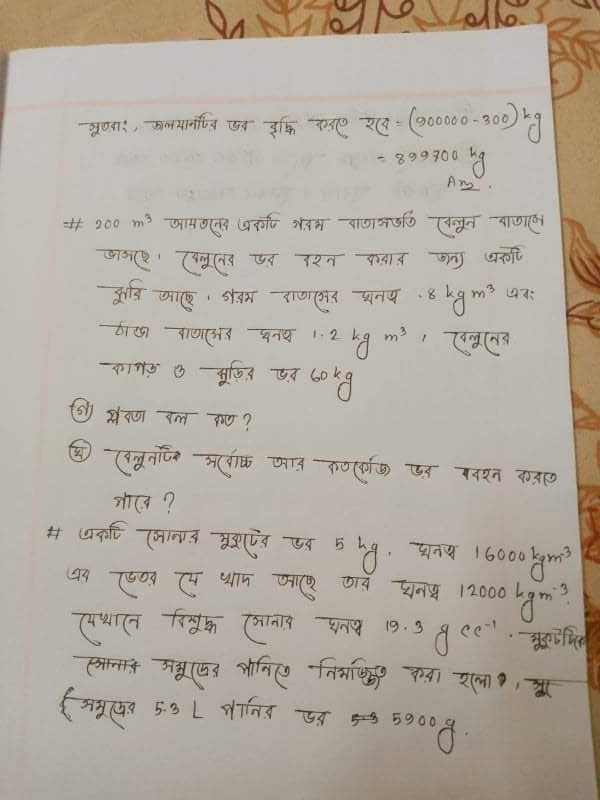 সুতরাং, জলযানটির ভর বৃদ্ধি করতে হবে = (900000-300) kg
= 899700 kg
Ans.
# 200 m³ আয়তনের একটি গরম বাতাসভর্তি বেলুন বাতাসে
ভাসছে। বেলুনের ভর বহন করার জন্য একটি
ঝুরি আছে। গরম বাতাসের ঘনত্ব .8 kg m³ এবং
ঠান্ডা বাতাসের ঘনত্ব 1.2 kg m³, বেলুনের
কাপড় ও ঝুড়ির ভর 60 kg
(গ) প্লবতা বল কত?
(ঘ) বেলুনটি সর্বোচ্চ আর কতকেজি ভর বহন করতে
পারে?
# একটি সোনার মুকুটের ভর 5 kg. ঘনত্ব 16000 kgm⁻³
এর ভেতর যে খাদ আছে তার ঘনত্ব 12000 kgm⁻³.
যেখানে বিশুদ্ধ সোনার ঘনত্ব 19.3 g cc⁻¹. মুকুটটিকে
সমুদ্রের পানিতে নিমজ্জিত করা হলো।
{সমুদ্রের 5.3 L পানির ভর 5900 g.